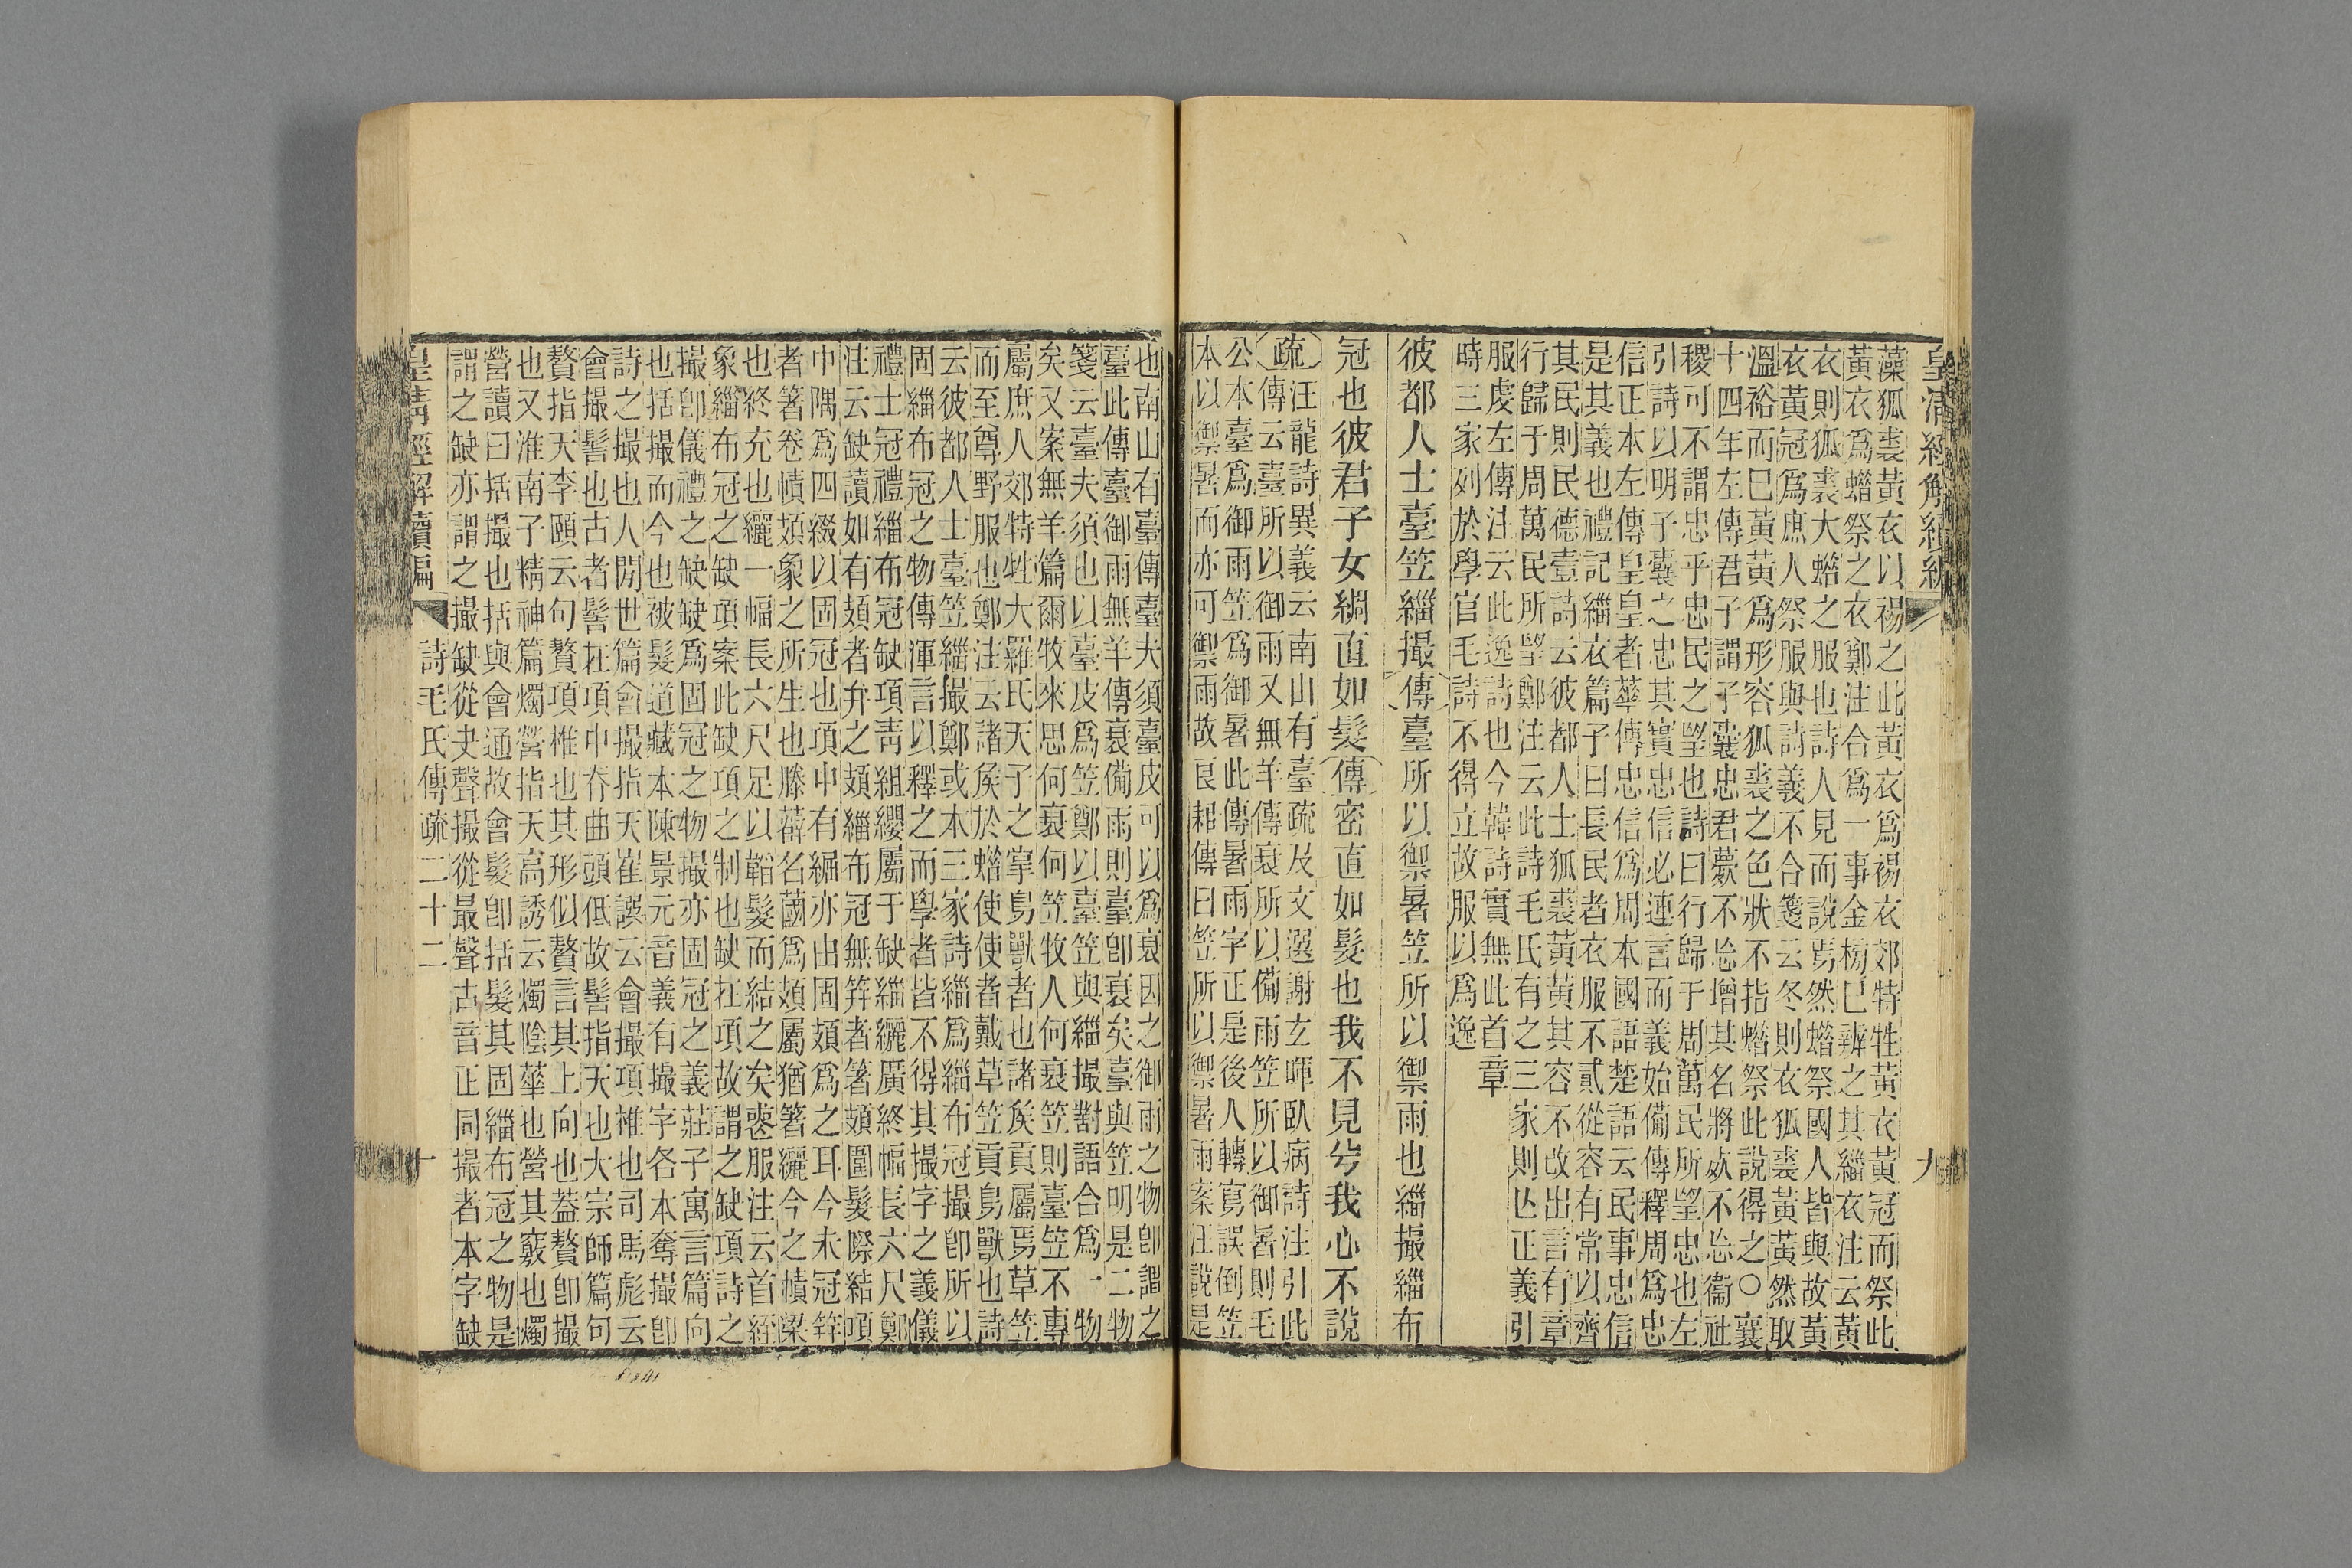 皇清經解續編 九
藻狐裘黃衣以裼之此黃衣爲裼衣郊特牲黃衣黃冠而祭此
黃衣爲蜡祭之衣鄭注合爲一事金榜已辨之其緇衣注云黃
衣則狐裘大蜡之服也詩人見而說焉然蜡祭國人皆與故黃
衣黃冠爲庶人祭服與詩義不合箋云冬則衣狐裘黃黃然取
溫裕而已黃黃爲形容狐裘之色狀不指蜡祭此說得之○襄
十四年左傳君子謂子囊忠君薨不忘增其名將死不忘衞社
稷可不謂忠乎忠民之望也詩曰行歸于周萬民所望忠也左
引詩以明子囊之忠其實忠信必連言而義始備傳釋周爲忠
信正本左傳皇皇者華傳忠信爲周本國語楚語云民事忠信
是其義也禮記緇衣篇子曰長民者衣服不貳從容有常以齊
其民則民德壹詩云彼都人士狐裘黃黃其容不改出言有章
行歸于周萬民所望鄭注云此詩毛氏有之三家則亾正義引
服虔左傳注云此逸詩也今韓詩實無此首章
時三家列於學官毛詩不得立故服以爲逸
彼都人士臺笠緇撮傳臺所以禦暑笠所以禦雨也緇撮緇布
冠也彼君子女綢直如髮傳密直如髮也我不見兮我心不說
疏汪龍詩異義云南山有臺疏及文選謝玄暉臥病詩注引此
傳云臺所以御雨又無羊傳蓑所以備雨笠所以御暑則毛
公本臺爲御雨笠爲御暑此傳暑雨字正是後人轉寫誤倒笠
本以禦暑而亦可禦雨故良耜傳曰笠所以禦暑雨案汪說是
也南山有臺傳臺夫須臺皮可以爲蓑因之御雨之物卽謂之
臺此傳臺御雨無羊傳蓑備雨則臺卽蓑矣臺與笠明是二物
箋云臺夫須也以臺皮爲笠鄭以臺笠與緇撮對語合爲一物
矣又案無羊篇爾牧來思何蓑何笠牧人何蓑笠則臺笠不專
屬庶人郊特牲大羅氏天子之掌鳥獸者也諸侯貢屬焉草笠
而至尊野服也鄭注云諸侯於蜡使使者戴草笠貢鳥獸也詩
云彼都人士臺笠緇撮鄭或本三家詩緇爲緇布冠撮卽所以
固緇布冠之物傳渾言以釋之而學者皆不得其撮字之義儀
禮士冠禮緇布冠缺項靑組纓屬于缺緇纚廣終幅長六尺鄭
注云缺讀如有頍者弁之頍緇布冠無笄者箸頍圍髮際結項
中隅爲四綴以固冠也項中有䋿亦由固頍爲之耳今未冠笄
者箸卷幘頍象之所生也滕薛名蔮爲頍屬猶箸纚今之幘梁
也終充也纚一幅長六尺足以韜髮而結之矣喪服注云首絰
象緇布冠之缺項案此缺項之制也缺在項故謂之缺項詩之
撮卽儀禮之缺缺爲固冠之物撮亦固冠之義莊子寓言篇向
也括撮而今也被髮道藏本陳景元音義有撮字各本奪撮卽
詩之撮也人閒世篇會撮指天崔譔云會撮項椎也司馬彪云
會撮髻也古者髻在項中脊曲頭低故髻指天也大宗師篇句
贅指天李頤云句贅項椎也其形似贅言其上向也蓋贅卽撮
也又淮南子精神篇燭營指天高誘云燭陰華也營其竅也燭
營讀曰括撮也括與會通故會髮卽括髮其固緇布冠之物是
謂之缺亦謂之撮缺從夬聲撮從最聲古音正同撮者本字缺
皇清經解續編 詩毛氏傳疏二十二 十